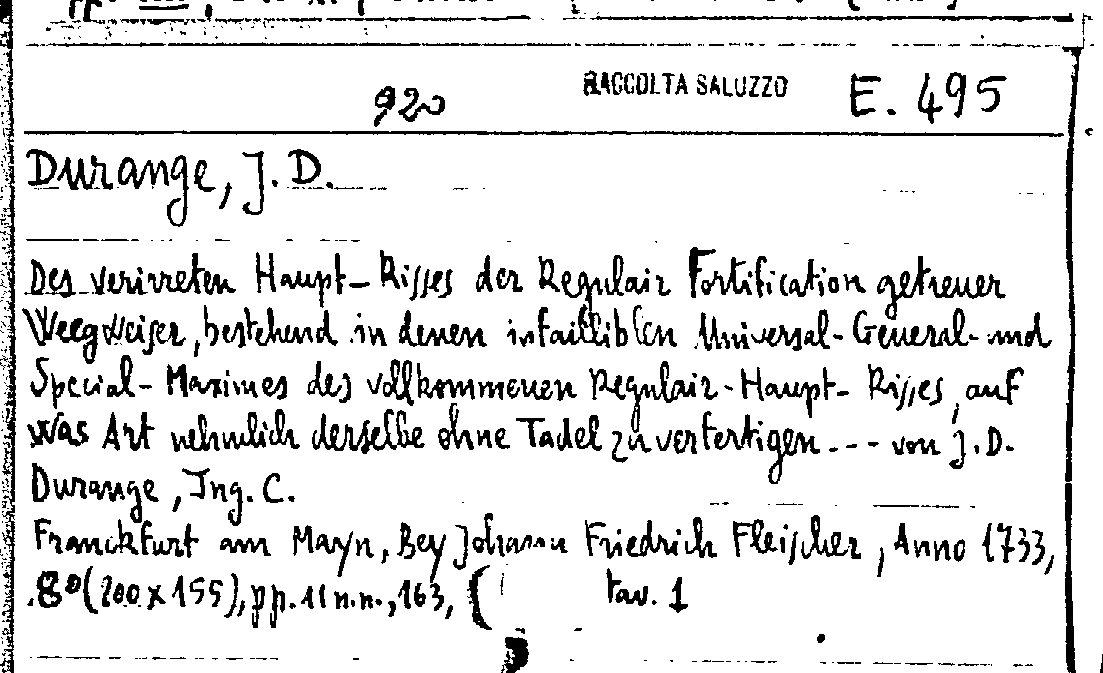 920 RACCOLTA SALUZZO E. 495
Durange, J. D.
Des verirreten Haupt-Risses der Regulair Fortification getreuer
Weegweiser, bestehend in denen infailliblen Universal-General-und
Special-Maximes des vollkommenen Regulair-Haupt-Risses, auf
was Art nehmlich derselbe ohne Tadel zu verfertigen... von J.D.
Durange, Ing. C.
Franckfurt am Mayn, Bey Johann Friedrich Fleischer, Anno 1733,
8° (200 x 155), pp. 11 n.n., 163, ( tav. 1